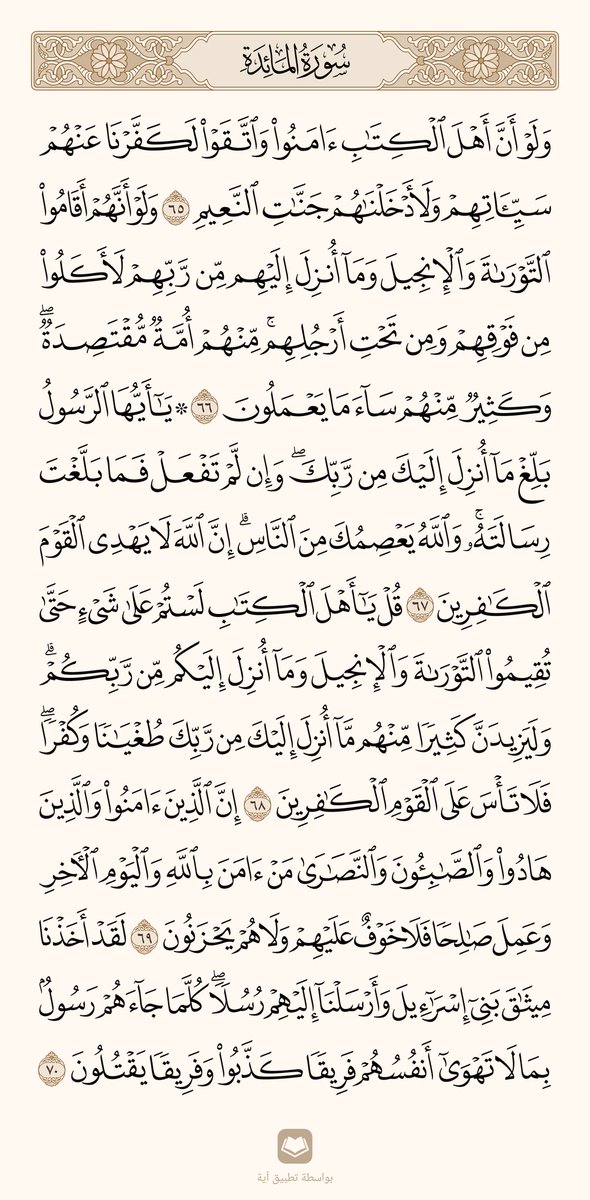 سُورَةُ المَائِدَةِ
وَلَوْ أَنَّ أَهْلَ ٱلْكِتَٰبِ ءَامَنُوا۟ وَٱتَّقَوْا۟ لَكَفَّرْنَا عَنْهُمْ
سَيِّـَٔاتِهِمْ وَلَأَدْخَلْنَٰهُمْ جَنَّٰتِ ٱلنَّعِيمِ ٦٥ وَلَوْ أَنَّهُمْ أَقَامُوا۟
ٱلتَّوْرَىٰةَ وَٱلْإِنجِيلَ وَمَآ أُنزِلَ إِلَيْهِم مِّن رَّبِّهِمْ لَأَكَلُوا۟
مِن فَوْقِهِمْ وَمِن تَحْتِ أَرْجُلِهِم ۚ مِّنْهُمْ أُمَّةٌ مُّقْتَصِدَةٌ ۖ
وَكَثِيرٌ مِّنْهُمْ سَآءَ مَا يَعْمَلُونَ ٦٦ ۞ يَٰٓأَيُّهَا ٱلرَّسُولُ
بَلِّغْ مَآ أُنزِلَ إِلَيْكَ مِن رَّبِّكَ ۖ وَإِن لَّمْ تَفْعَلْ فَمَا بَلَّغْتَ
رِسَالَتَهُۥ ۚ وَٱللَّهُ يَعْصِمُكَ مِنَ ٱلنَّاسِ ۗ إِنَّ ٱللَّهَ لَا يَهْدِى ٱلْقَوْمَ
ٱلْكَٰفِرِينَ ٦٧ قُلْ يَٰٓأَهْلَ ٱلْكِتَٰبِ لَسْتُمْ عَلَىٰ شَىْءٍ حَتَّىٰ
تُقِيمُوا۟ ٱلتَّوْرَىٰةَ وَٱلْإِنجِيلَ وَمَآ أُنزِلَ إِلَيْكُم مِّن رَّبِّكُمْ ۗ
وَلَيَزِيدَنَّ كَثِيرًا مِّنْهُم مَّآ أُنزِلَ إِلَيْكَ مِن رَّبِّكَ طُغْيَٰنًا وَكُفْرًا ۖ
فَلَا تَأْسَ عَلَى ٱلْقَوْمِ ٱلْكَٰفِرِينَ ٦٨ إِنَّ ٱلَّذِينَ ءَامَنُوا۟ وَٱلَّذِينَ
هَادُوا۟ وَٱلصَّٰبِـُٔونَ وَٱلنَّصَٰرَىٰ مَنْ ءَامَنَ بِٱللَّهِ وَٱلْيَوْمِ ٱلْـَٔاخِرِ
وَعَمِلَ صَٰلِحًا فَلَا خَوْفٌ عَلَيْهِمْ وَلَا هُمْ يَحْزَنُونَ ٦٩ لَقَدْ أَخَذْنَا
مِيثَٰقَ بَنِىٓ إِسْرَٰٓءِيلَ وَأَرْسَلْنَآ إِلَيْهِمْ رُسُلًا ۖ كُلَّمَا جَآءَهُمْ رَسُولٌۢ
بِمَا لَا تَهْوَىٰٓ أَنفُسُهُمْ فَرِيقًا كَذَّبُوا۟ وَفَرِيقًا يَقْتُلُونَ ٧٠
بواسطة تطبيق آية